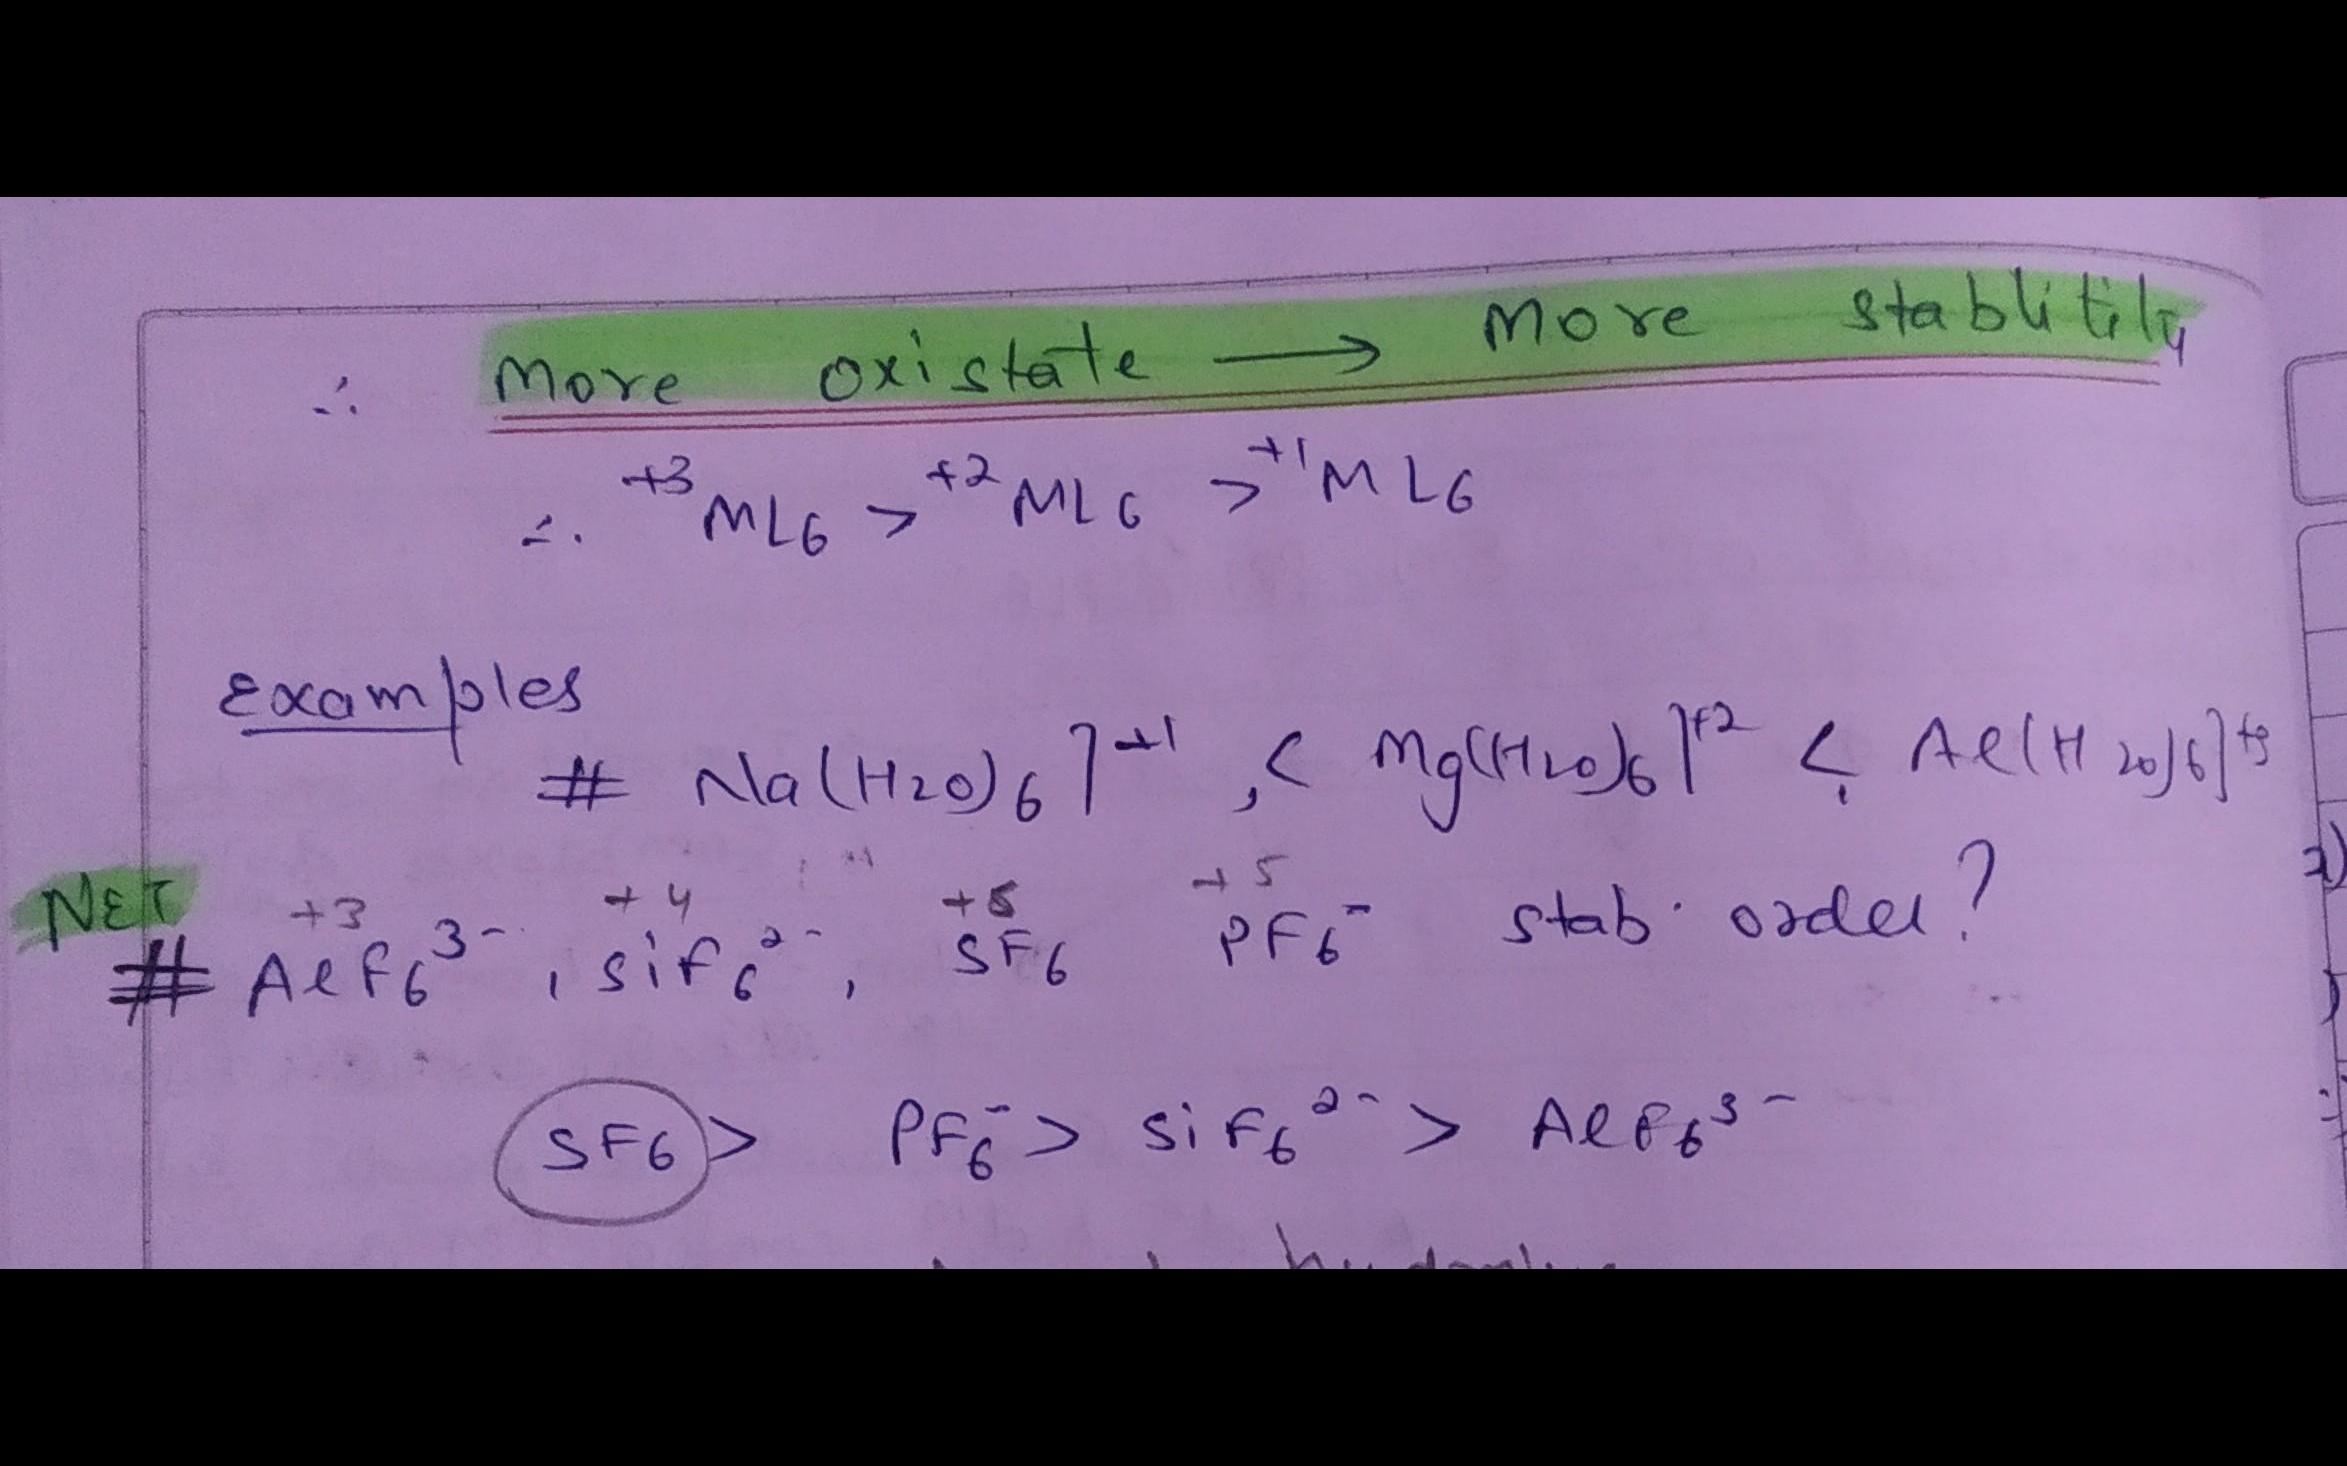 ∴ More oxistate → More stablitily
∴ +3ML6 > +2ML6 > +1ML6
Examples
# Na(H2O)6]+1 ,< Mg(H2O)6]+2 <, Al(H2O)6]+3
NET
# +3 AlF6 3-, +4 SiF6 2-, +6 SF6 +5 PF6- stab. order?
SF6 > PF6- > SiF6 2- > AlF6 3-